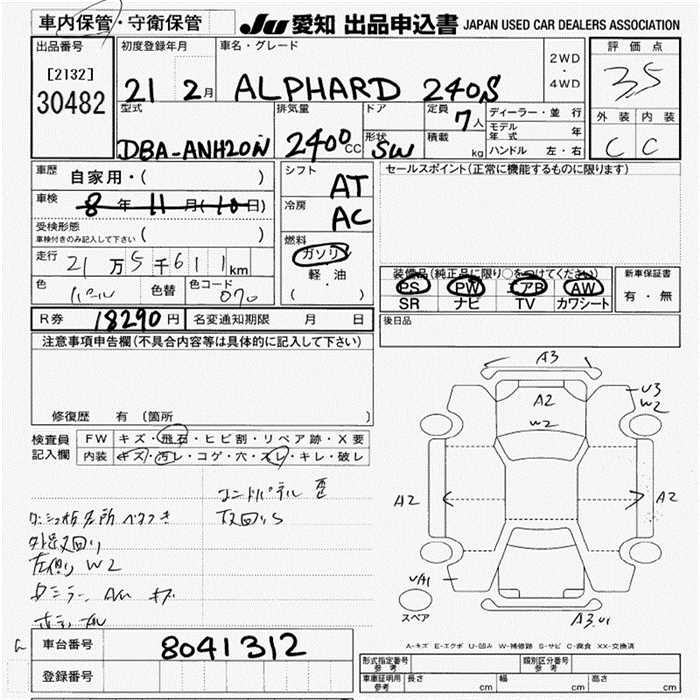 車内保管・守衛保管
JU 愛知 出品申込書 JAPAN USED CAR DEALERS ASSOCIATION
出品番号 初度登録年月 車名・グレード 2WD・4WD 評価点
[2132] 30482 21 2月 ALPHARD 240S 3.5
型式 排気量 ドア 定員 7人 ディーラー・並行 外装 内装
モデル年式 年
DBA-ANH20W 2400cc 形状 SW 積載 kg ハンドル 左・右 C C
車歴 自家用・( ) シフト AT セールスポイント(正常に機能するものに限ります)
車検 8年11月(10日) 冷房 AC
受検形態 ( )
車検付きのみ記入して下さい
燃料 ガソリン
走行 21万5千611km 軽・油
装備品(純正品に限り○をつけてください) 新車保証書
色 パール 色替 色コード 070 ( ・ )
PS PW エアB AW 有・無
SR ナビ TV カワシート
R券 18290円 名変通知期限 月 日 後日品
注意事項申告欄(不具合内容等は具体的に記入して下さい)
修復歴 有(箇所 )
検査員記入欄 FW キズ・飛石・ヒビ割・リペア跡・X要
内装 キズ・汚レ・コゲ・穴・スレ・キレ・破レ
外
左側 W2
A3
A2
W2
U3
W2
A2
A2
UA1
スペア
A3.U1
A-キズ E-エクボ U-凹み W-補修跡 S-サビ C-腐食 XX-交換済
車台番号 8041312
登録番号
形式指定番号 参考 類別区分番号 参考
車庫証明用 参考 長さ cm 幅 cm 高さ cm